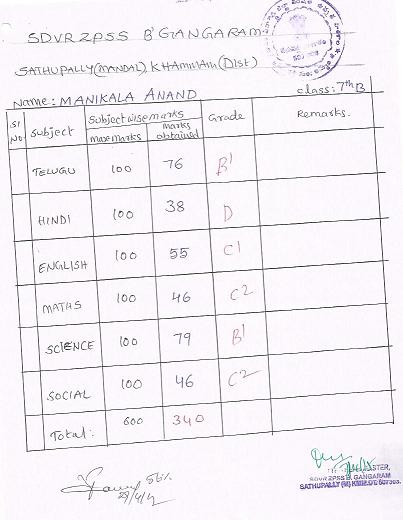 SDVR ZPSS B'GANGARAM
SATHUPALLY(MANDAL) KHAMMAM(Dist)
Name: MANIKALA ANAND class: 7th B
Sl No Subject Subject wise marks Grade Remarks.
Max marks Marks obtained
TELUGU 100 76 B1
HINDI 100 38 D
ENGLISH 100 55 C1
MATHS 100 46 C2
SCIENCE 100 79 B1
SOCIAL 100 46 C2
Total: 600 340
56%
SDVR ZPSS B. GANGARAM
SATHUPALLY (M)